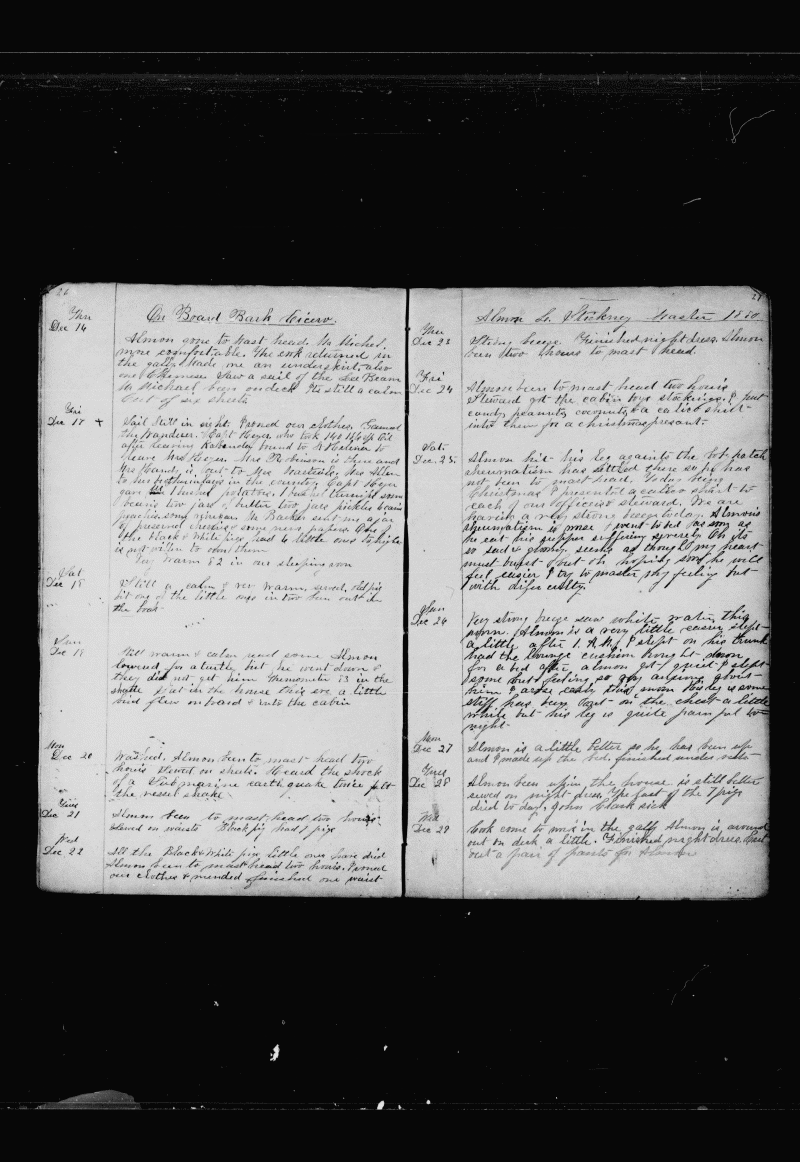 26
On Board Bark Cicero.
Thu
Dec 16
Almon gone to mast head. Mr Michel
more comfortable. The cook returned in
the gally. Made me an underskirt, also
one Chemise. Saw a sail of the Lee Beam
Mr Michael been on deck. Its still a calm
Cut of six sheets
Fri
Dec 17 +
Sail still in sight. Ironed our clothes. Gamed
the Wanderer. Capt Heyer, who took 140 Oil
after leaving bound to
leave Mrs Heyer. Mrs Robinson is there and
Mrs Hand is, out to Mrs Mrs Allen
to in the country. Capt Heyer
gave 1 bushel potatoes, 1 some
beans two jars of butter two jars pickles
peaches some Mr Barker sent me a jar
of preserved cherries & some news papers. One of
the black & white pigs had 6 little ones to night
is not willing to own them
Very warm 82 in our sleeping room
Sat
Dec 18
Still a calm & very warm, sewed, old pig
bit one of the little ones in two
the boat
Sun
Dec 19
Still warm & calm read some Almon
lowered for a turtle, but he went down &
they did not get him thermometer 93 in the
shade. Sat in the house this eve a little
bird flew on board & into the cabin
Mon
Dec 20
Washed. Almon been to mast head two
hours sewed on sheets. Heard the shock
of a Submarine earth quake twice felt
the vessel shake
Tues
Dec 21
Almon been to mast head two hours
sewed on waists Black pig had 7 pigs
Wed
Dec 22
All the Black & White pigs little ones have died
Almon been to mast head two hours. Ironed
our clothes & mended & finished one waist
27
Almon L. Stickney Master 1880
Thu
Dec 23
Strong breeze. Finished night dress. Almon
been two hours to mast head.
Fri
Dec 24
Almon been to mast head two hours
Steward got the cabin boys stockings. I put
candy, peanuts, coconuts & a calico shirt
into them for a christmas present.
Sat
Dec. 25
Almon hit his leg against the hatch
rheumatism has settled there so he has
not been to mast head. Today being
Christmas I presented a calico shirt to
each of our officers & steward. We are
having a very strong breeze today. Almon's
rheumatism is worse & went to bed as soon as
he eat his supper suffering severely Oh its
so sad & gloomy seems as though my heart
must burst but oh hoping soon he will
feel easier I try to master my feeling but
with difficulty.
Sun
Dec 26
Very strong breeze saw white water this
morn. Almon is a very little easier slept
a little after 1. A.M. I slept on his trunk
had the lounge cushion brought down
for a bed after almon got quiet & slept
some but feeling so
him & arose early this morn His leg is some
stiff has been out on the chest a little
while but his leg is quite painful to
night
Mon
Dec 27
Almon is a little better so he has been up
and I made up the bed. finished under waist
Tues
Dec 28
Almon been up in the house is still better
sewed on night dress. The last of the 7 pigs
died to day, John Clark sick
Wed
Dec 29
Cook come to work in the gally Almon is around
out on deck a little. Finished night dress. Cut
out a pair of pants for Almon